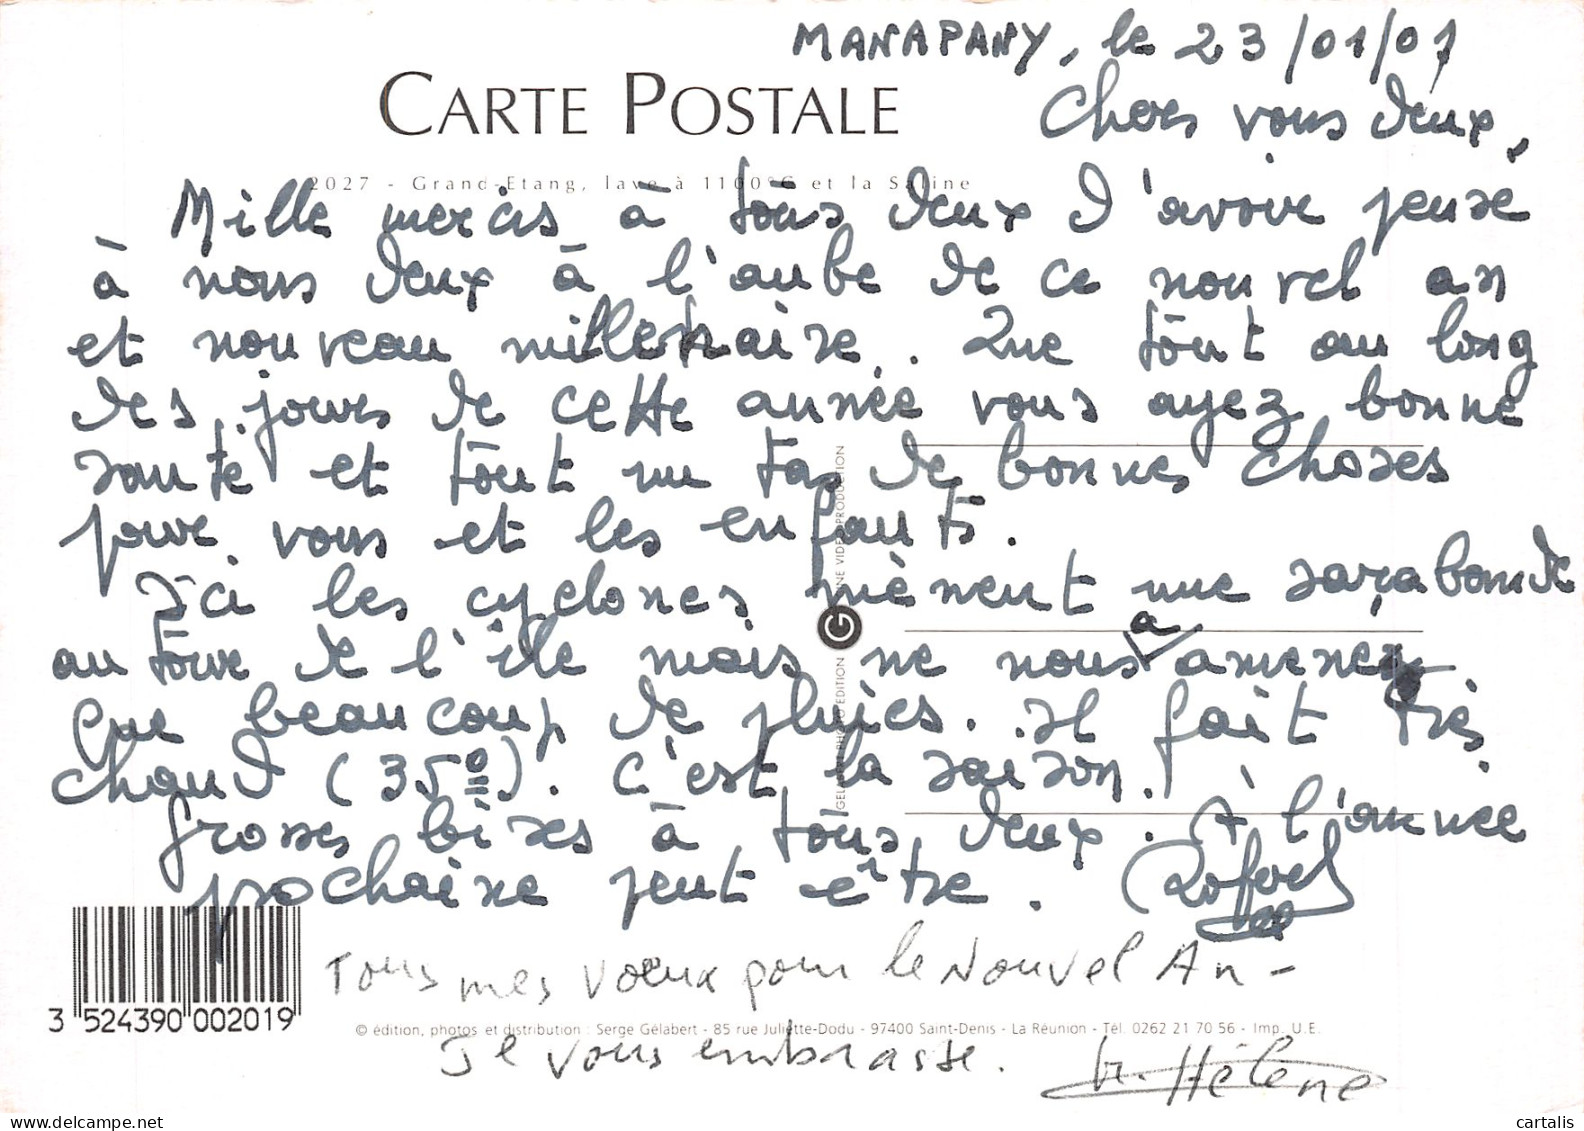 MANAPANY, le 23/01/01
CARTE POSTALE
Chers vous deux,
2027 - Grand-Etang, lave à 1100°C et la Saline
Mille mercis à tous deux d'avoir pensé
à nous deux à l'aube de ce nouvel an
et nouveau millénaire. Que tout au long
des jours de cette année vous ayez bonne
santé et tout un tas de bonnes choses
pour vous et les enfants.
Ici les cyclones mènent une sarabande
au tour de l'île mais ne nous a amener
que beaucoup de pluies. Il fait très
chaud (35°). C'est la saison.
Grosses bises à tous deux. A l'année
prochaine peut être.
GELABERT PHOTO EDITION G VIDEO PRODUCTION
3 524390 002019
Tous mes voeux pour le Nouvel An -
© édition, photos et distribution : Serge Gélabert - 85 rue Juliette-Dodu - 97400 Saint-Denis - La Réunion - Tél. 0262 21 70 56 - Imp. U.E.
Je vous embrasse. Hélène
cartalis
www.delcampe.net